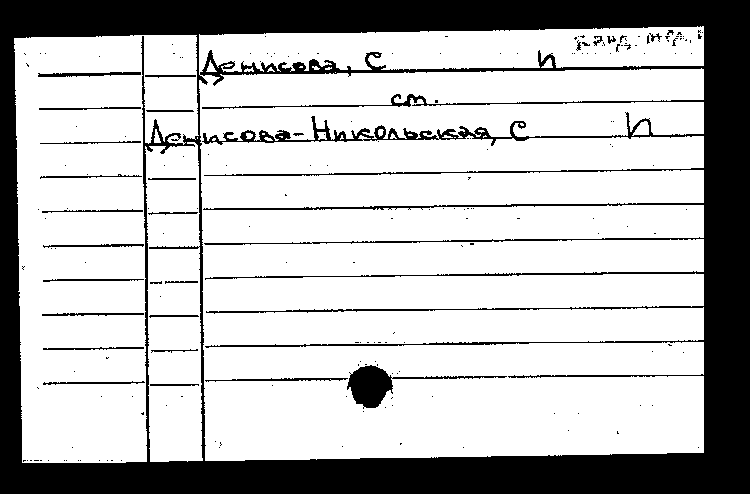 Денисова, С п
см.
Денисова-Никольская, С п